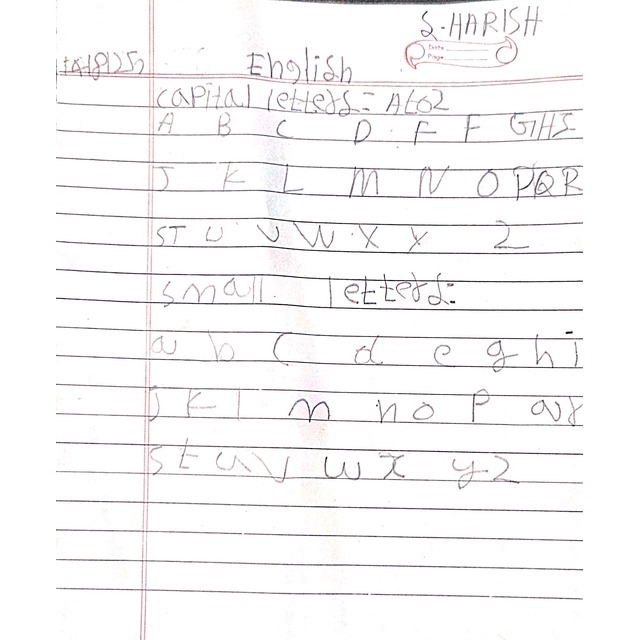 S.HARISH
Date
Page
English
capital letters = A to 2
A B C D F F G H I
J K L M N O P Q R
S T U V W X Y 2
small letters:
a b c d e g h i
j k l m n o p q r
s t u v w x y 2